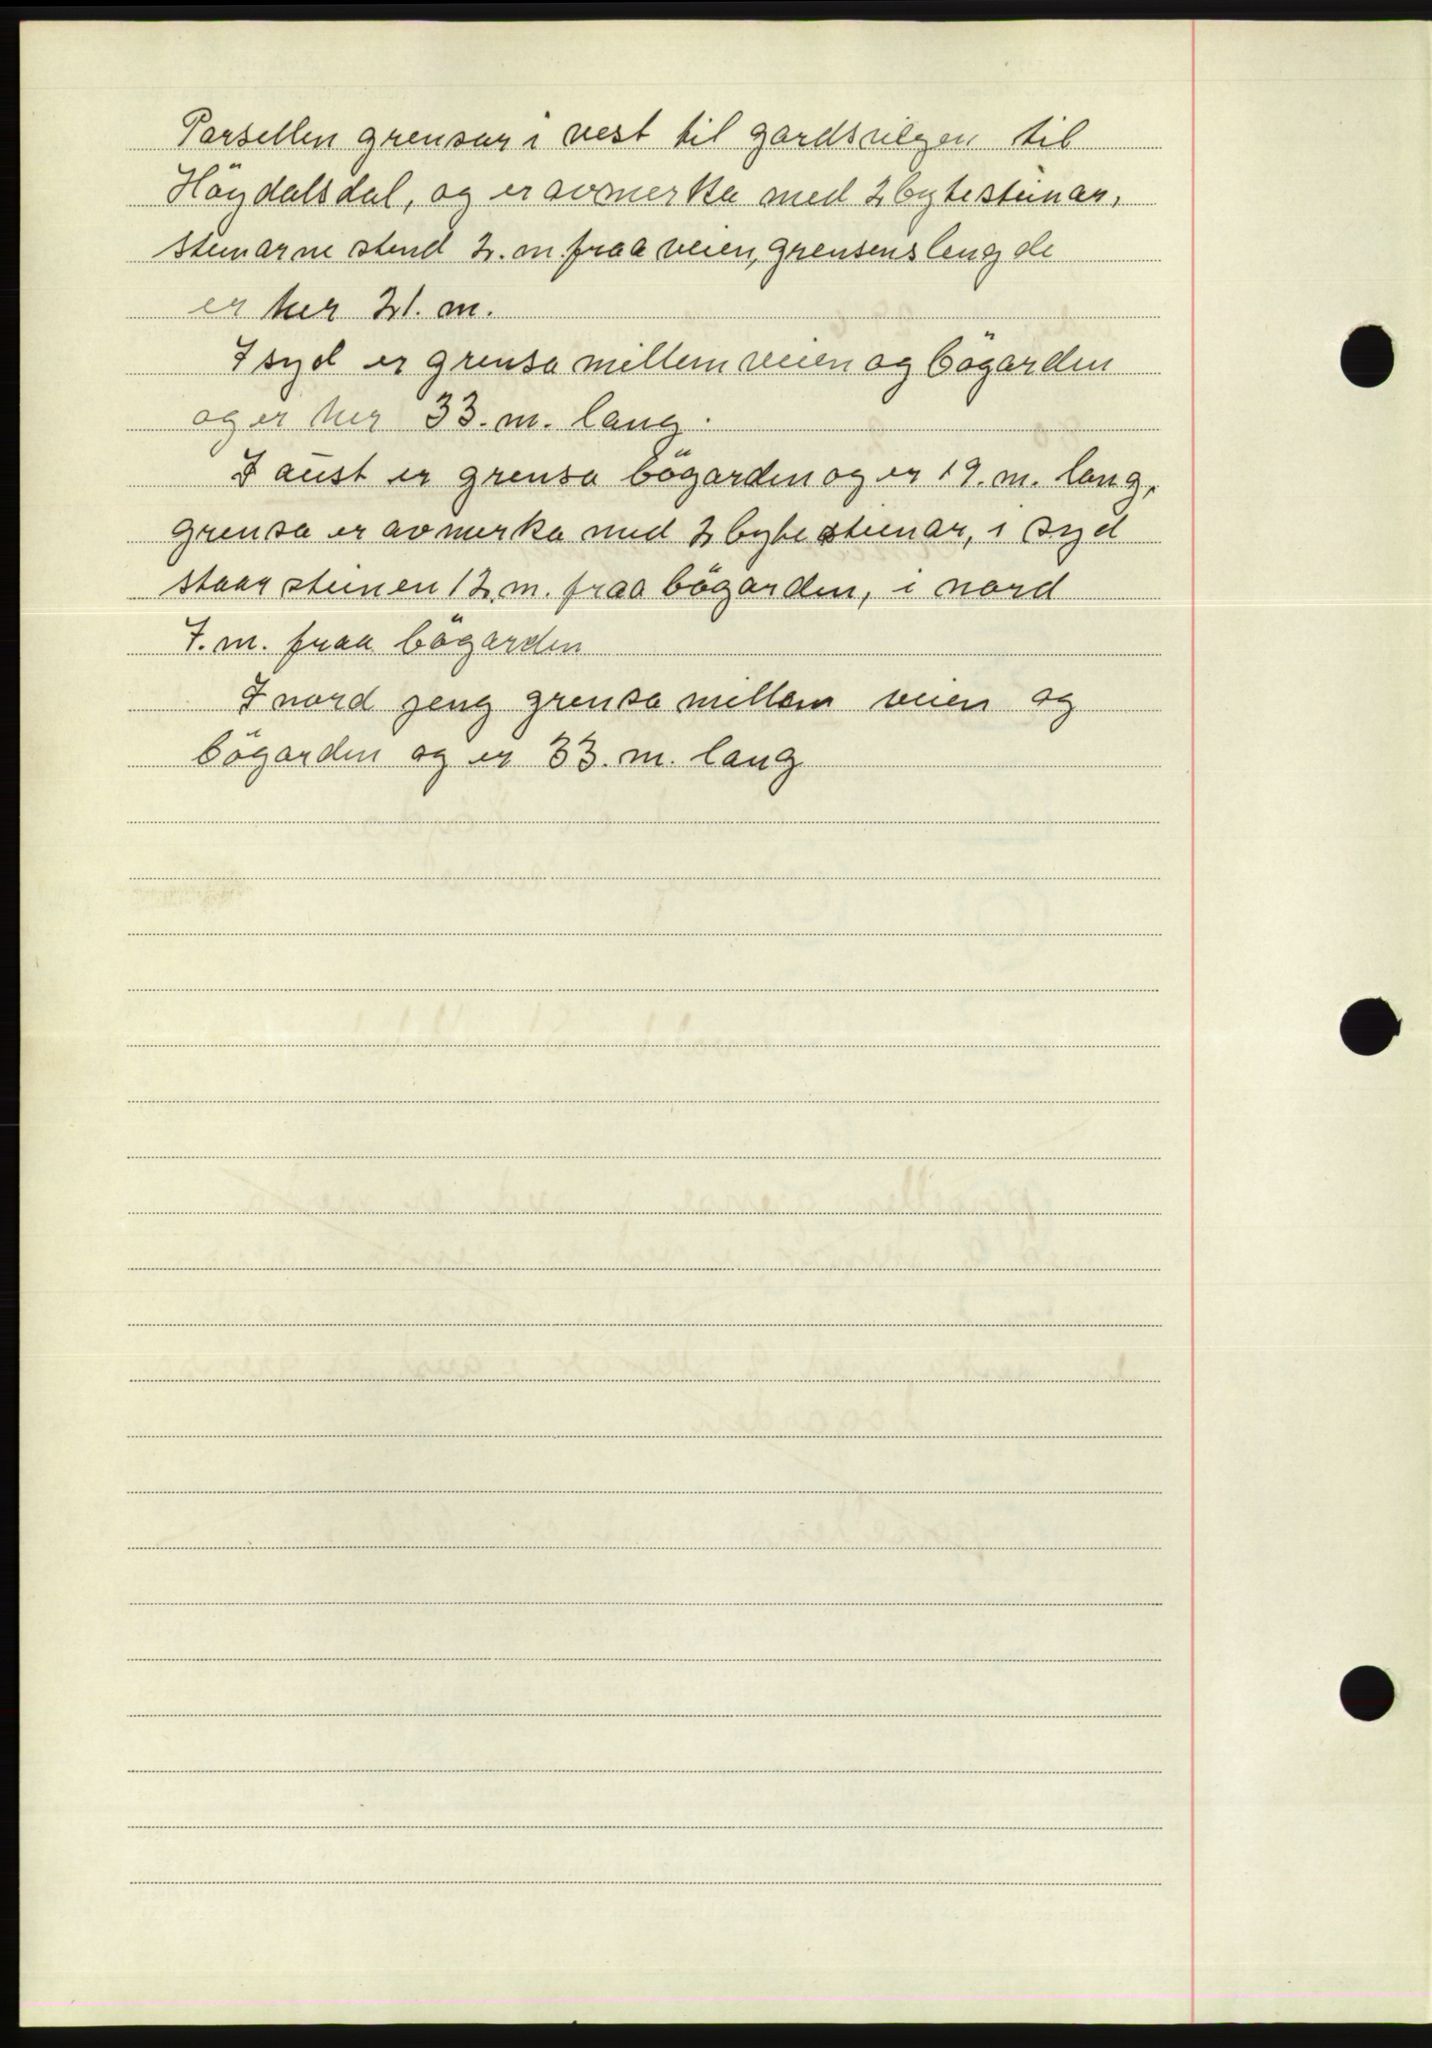 Parsellen grensar i vest til gardsvegen til
Höydalsdal, og er avmerka med 2 bytesteinar,
steinarne stend 2. m. fraa veien, grensens lengde
er her 21. m.
I syd er grensa millem veien og bögarden
og er her 33. m. lang.
I aust er grensa bögarden og er 19. m. lang,
grensa er avmerka med 2 byte steinar, i syd
staar steinen 12. m. fraa bögarden, i nord
7. m. fraa bögarden
I nord jeng grensa millem veien og
bögarden og er 33. m. lang